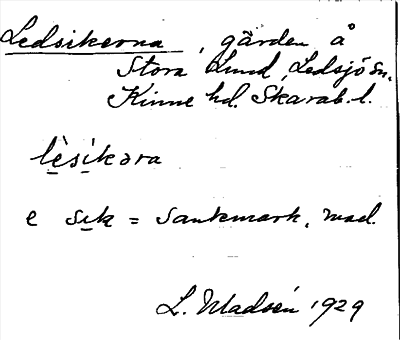 Ledsikerna, gärden å
Stora Lund, Ledsjö sn.
Kinne hd. Skarab. l.
lèsikəra
e sik = sankmark, mad.
L. Madsén 1929